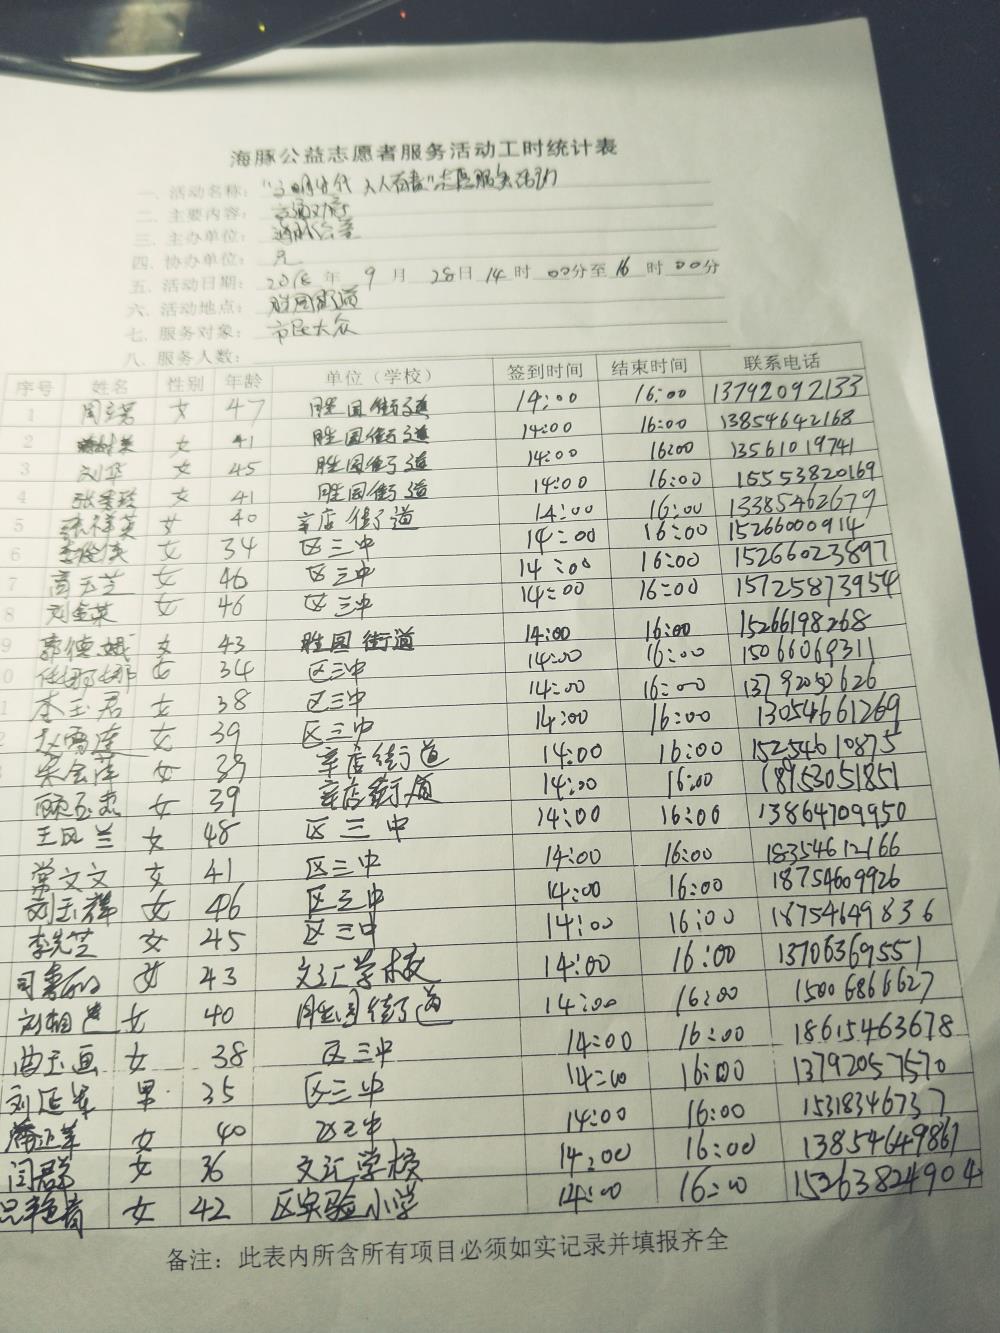 海豚公益志愿者服务活动工时统计表
一、活动名称：
二、主要内容：
三、主办单位：海豚公益
四、协办单位：无
五、活动日期：年 9 月 28日 14 时 00分至 16 时 00分
六、活动地点：胜园街道
七、服务对象：市民大众
八、服务人数：
序号 姓名 性别 年龄 单位（学校） 签到时间 结束时间 联系电话
1 女 47 胜园街道 14:00 16:00 13792092133
2 女 41 胜园街道 14:00 16:00 13854642168
3 刘华 女 45 胜园街道 14:00 16:00 13561019741
4 女 41 胜园街道 14:00 16:00 15553820169
5 女 40 辛店街道 14:00 16:00 13385462679
6 女 34 区三中 14:00 16:00 15266000914
7 高玉芝 女 46 区三中 14:00 16:00 15266023897
8 刘金荣 女 46 区三中 14:00 16:00 15725873954
9 郭德娥 女 43 胜园街道 14:00 16:00 15266198268
0 任娜娜 女 34 区三中 14:00 16:00 15066069311
李玉君 女 38 区三中 14:00 16:00 13792050626
女 39 区三中 14:00 16:00 13054661269
女 39 辛店街道 14:00 16:00 15254610875
顾玉杰 女 39 辛店街道 14:00 16:00 18953051851
王风兰 女 48 区三中 14:00 16:00 13864709950
常文文 女 41 区三中 14:00 16:00 18354612166
刘玉祥 女 46 区三中 14:00 16:00 18754609926
李先芝 女 45 区三中 14:00 16:00 18754649836
女 43 文汇学校 14:00 16:00 13706369551
女 40 胜园街道 14:00 16:00 15006866627
曲玉画 女 38 区三中 14:00 16:00 18615463678
刘延 男 35 区三中 14:00 16:00 13792057570
女 40 区三中 14:00 16:00 15318346737
闫群 女 36 文汇学校 14:00 16:00 13854649861
女 42 区实验小学 14:00 16:00 15263824904
备注：此表内所含所有项目必须如实记录并填报齐全